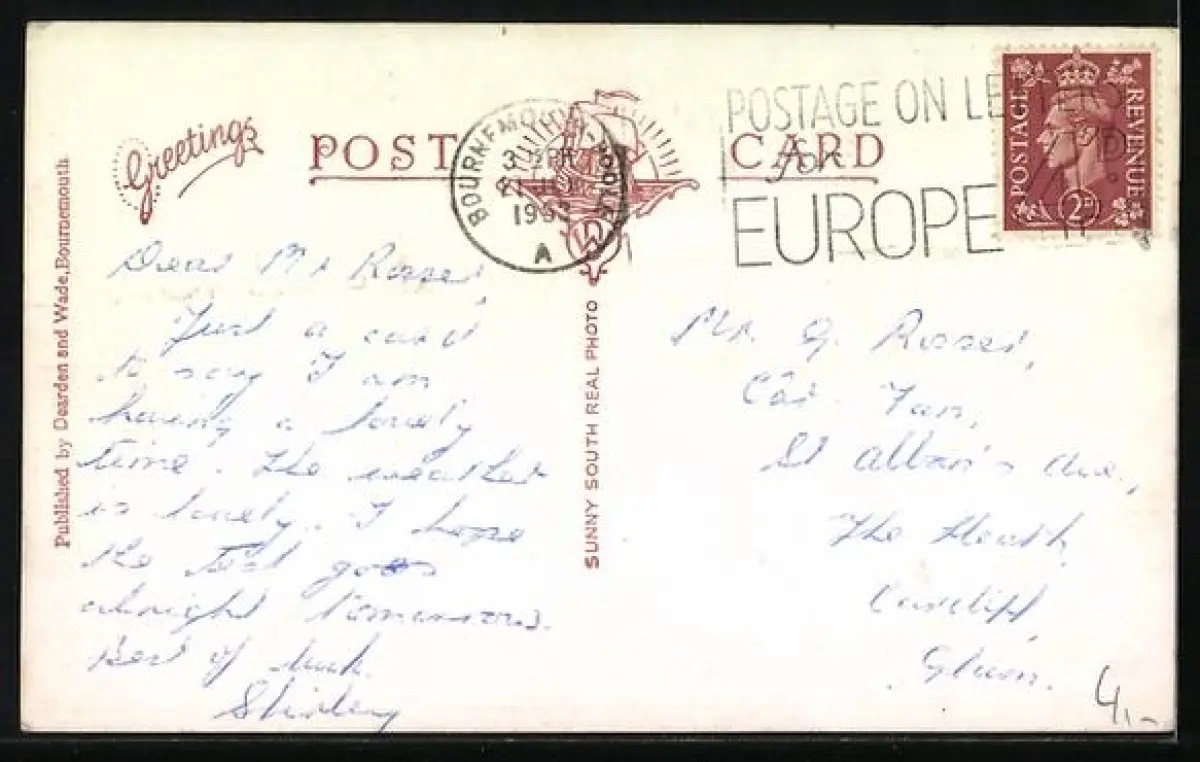 Greetings
POST CARD
BOURNEMOUTH-POOLE
195
A
POSTAGE ON LETTERS
for
EUROPE
POSTAGE REVENUE
2D
Published by Dearden and Wade, Bournemouth
SUNNY SOUTH REAL PHOTO
Dear Mr Rosser,
Just a card
to say I am
having a lovely
time. The weather
is lovely. I hope
the test goes
alright tomorrow.
Best of luck.
Shirley
Mr. G. Rosser,
Fan,
St Alban's Ave.,
The Heath,
Cardiff,
Glam.
4,-